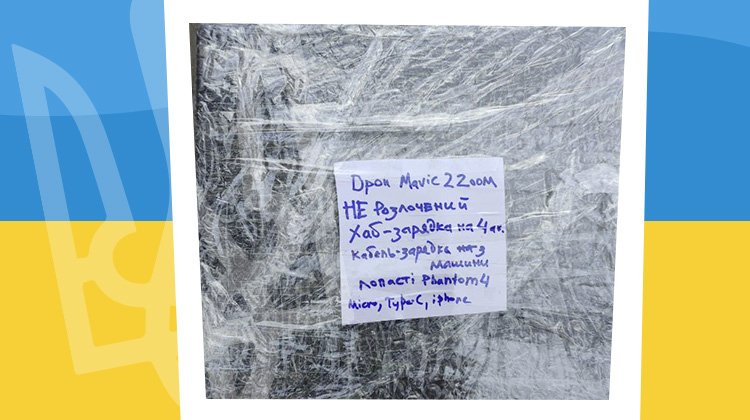 Дрон Mavic 2 Zoom
НЕ Розлочений
Хаб-зарядка на 4 ак.
Кабель-зарядка на з
машини
лопасті Phantom 4
Micro, Type-C, iphone